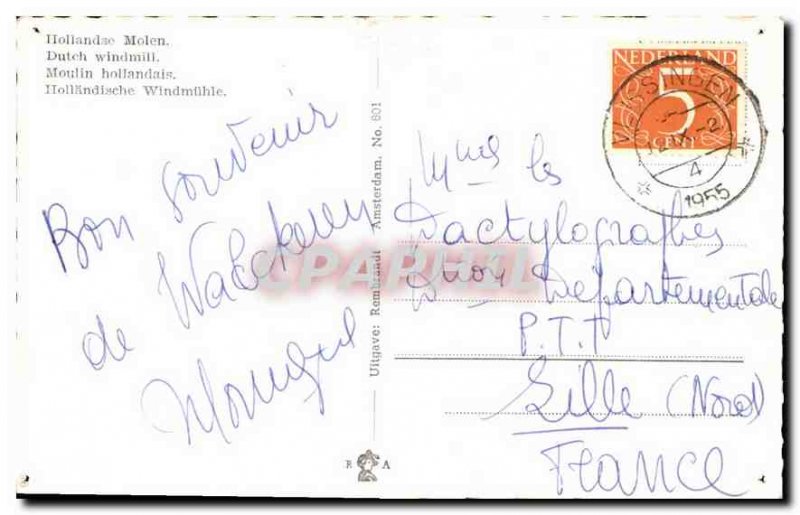 Hollandse Molen.
Dutch windmill.
Moulin hollandais.
Holländische Windmühle.
Bon souvenir
de Walcheren
Uitgave: Rembrandt Amsterdam. No. 601
R A
NEDERLAND
5
CENT
VLISSINGEN
4
1955
Mmes les
Dactylographes
Départementale
P.T.T
Lille (Nord)
France
CPAPHIL